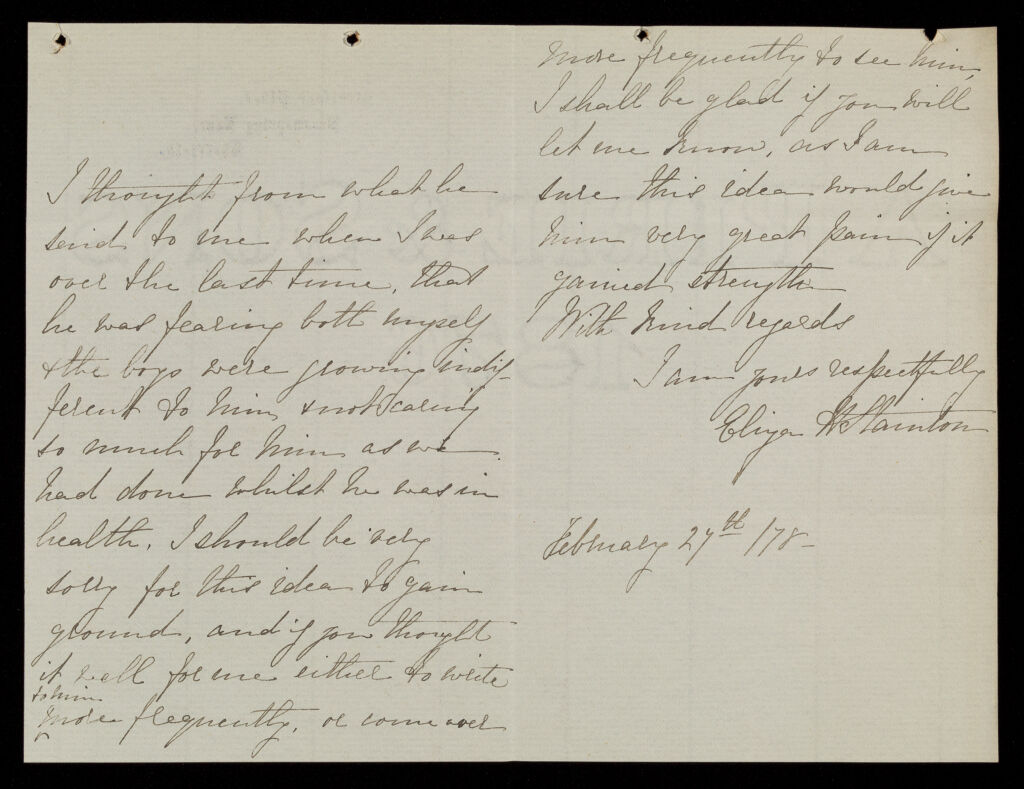 I thought from what he
said to me when I was
over the last time, that
he was fearing both myself
& the boys were growing indif-
ferent to him, & not caring
so much for him as we
had done whilst he was in
health. I should be very
sorry for this idea to gain
ground, and if you thought
it well for me either to write
to him
more frequently, or come over
more frequently to see him,
I shall be glad if you will
let me know, as I am
sure this idea would give
him very great pain if it
gained strength
With kind regards
I am yours respectfully
Eliza Stainton
February 27th /78-